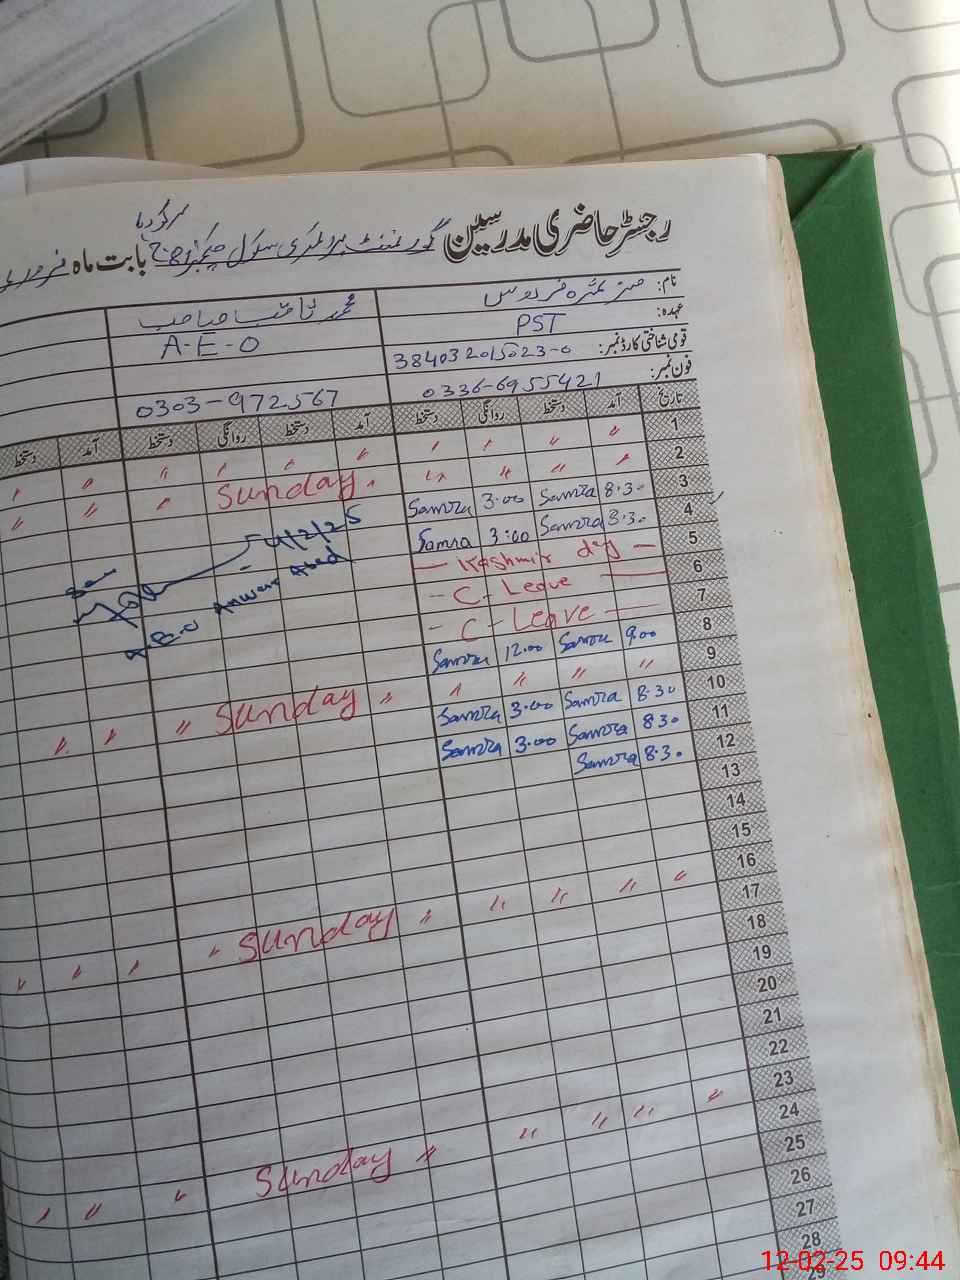 سرگودہا
رجسٹر حاضری مدرسین گورنمنٹ پرائمری سکول بابت ماہ فروری
نام:
عہدہ: PST A-E-O
قومی شناختی کارڈ نمبر: 384032015023-0
فون نمبر: 0336-6955421 0303-972567
تاریخ آمد دستخط روانگی دستخط آمد دستخط روانگی دستخط آمد دستخط
1 " " " " " " " " " "
2 " " " " Sunday " " "
3 8.30 Samra 3.00 Samra
4 8.30 Samra 3:00 Samra 4/2/25
5 — Kashmir day —
6 - C- Leave —
7 - C- Leave —
8 9.00 Samra 12.00 Samra
9 " " " " " Sunday " " "
10 8.30 Samra 3.00 Samra
11 830 Samra 3.00 Samra
12 8.30 Samra
13
14
15
16 " " " " " Sunday " " " "
17
18
19
20
21
22
23 " " " " " Sunday " " "
24
25
26
27
28
29
12-02-25 09:44